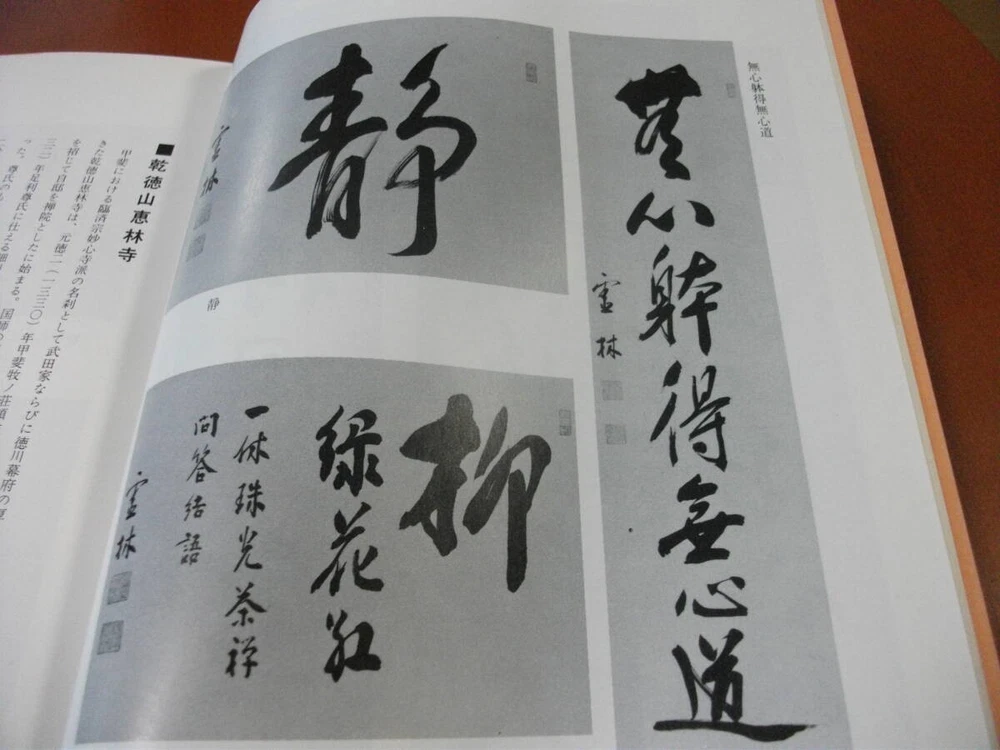 無心躰得無心道
無心躰得無心道
林
静
林
静
柳
緑花紅
一休珠光茶禅
問答結語
林
■乾徳山恵林寺
甲斐における臨済宗妙心寺派の名刹として武田家ならびに徳川幕府の
きた乾徳山恵林寺は、元徳二(一三三〇)年甲斐牧ノ荘
を招じて自邸を禅院としたに始まる。国師の
三二)年足利尊氏に仕える
った。尊氏の